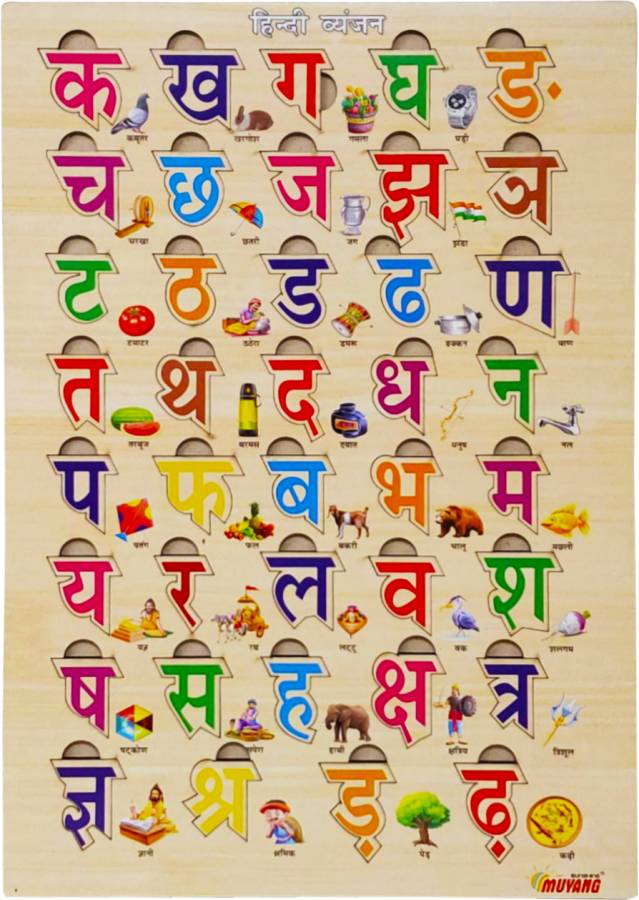 हिन्दी व्यंजन
क ख ग घ ङ
कबूतर खरगोश गमला घड़ी
च छ ज झ ञ
चरखा छतरी जग झंडा
ट ठ ड ढ ण
टमाटर ठठेरा डमरू ढक्कन बाण
त थ द ध न
तरबूज थरमस दवात धनुष नल
प फ ब भ म
पतंग फल बकरी भालू मछली
य र ल व श
यज्ञ रथ लट्टू वक शलगम
ष स ह क्ष त्र
षट्कोण सपेरा हाथी क्षत्रिय त्रिशूल
ज्ञ श्र ड़ ढ़
ज्ञानी श्रमिक पेड़ कढ़ी
MUVANG